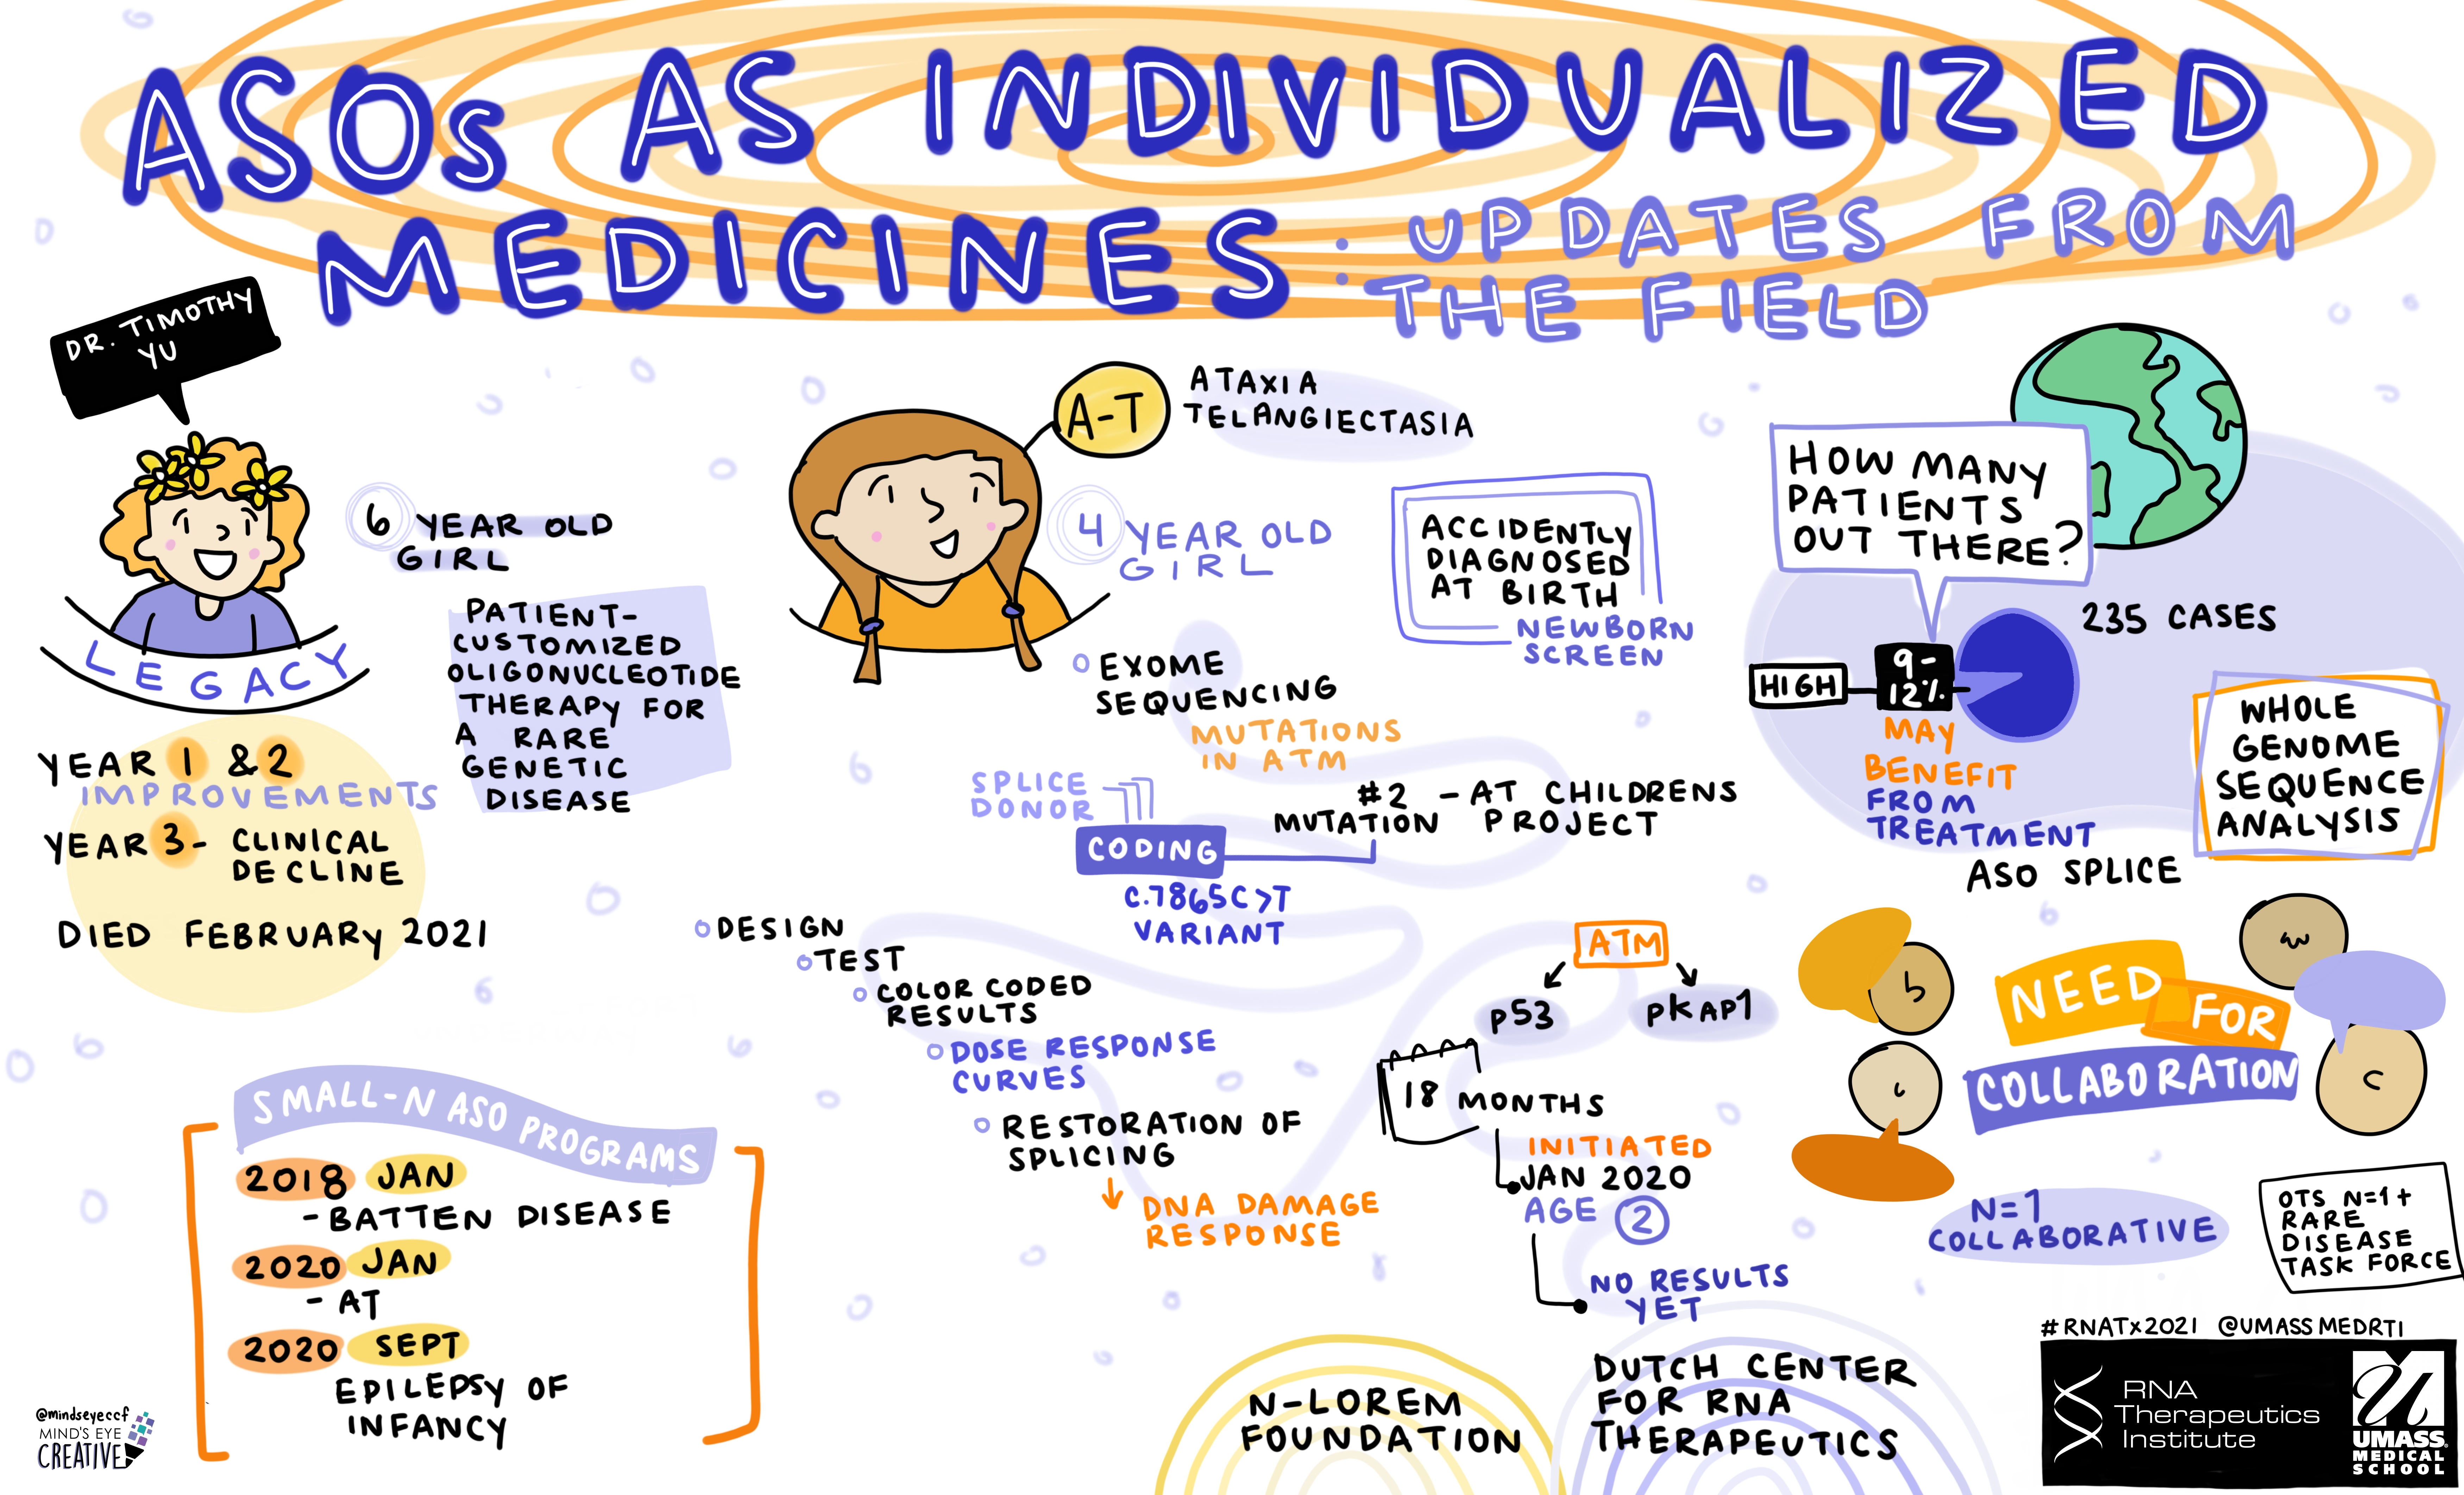 ASOs AS INDIVIDUALIZED
MEDICINES: UPDATES FROM
THE FIELD
DR. TIMOTHY
YU
6 YEAR OLD
GIRL
LEGACY
PATIENT-
CUSTOMIZED
OLIGONUCLEOTIDE
THERAPY FOR
A RARE
GENETIC
DISEASE
YEAR 1 & 2
IMPROVEMENTS
YEAR 3 - CLINICAL
DECLINE
DIED FEBRUARY 2021
SMALL-N ASO PROGRAMS
2018 JAN
- BATTEN DISEASE
2020 JAN
- AT
2020 SEPT
EPILEPSY OF
INFANCY
@mindseyeccf
MIND'S EYE
CREATIVE
A-T
ATAXIA
TELANGIECTASIA
4 YEAR OLD
GIRL
ACCIDENTLY
DIAGNOSED
AT BIRTH
NEWBORN
SCREEN
EXOME
SEQUENCING
MUTATIONS
IN ATM
SPLICE
DONOR
CODING
#2 - AT CHILDRENS
MUTATION PROJECT
C.7865C>T
VARIANT
DESIGN
TEST
COLOR CODED
RESULTS
DOSE RESPONSE
CURVES
RESTORATION OF
SPLICING
↓ DNA DAMAGE
RESPONSE
ATM
P53
PKAP1
18 MONTHS
INITIATED
JAN 2020
AGE 2
NO RESULTS
YET
N-LOREM
FOUNDATION
DUTCH CENTER
FOR RNA
THERAPEUTICS
HOW MANY
PATIENTS
OUT THERE?
235 CASES
HIGH
9-
12%
MAY
BENEFIT
FROM
TREATMENT
ASO SPLICE
WHOLE
GENOME
SEQUENCE
ANALYSIS
NEED
FOR
COLLABORATION
N=1
COLLABORATIVE
OTS N=1+
RARE
DISEASE
TASK FORCE
#RNATx2021 @UMASSMEDRTI
RNA
Therapeutics
Institute
UMASS
MEDICAL
SCHOOL